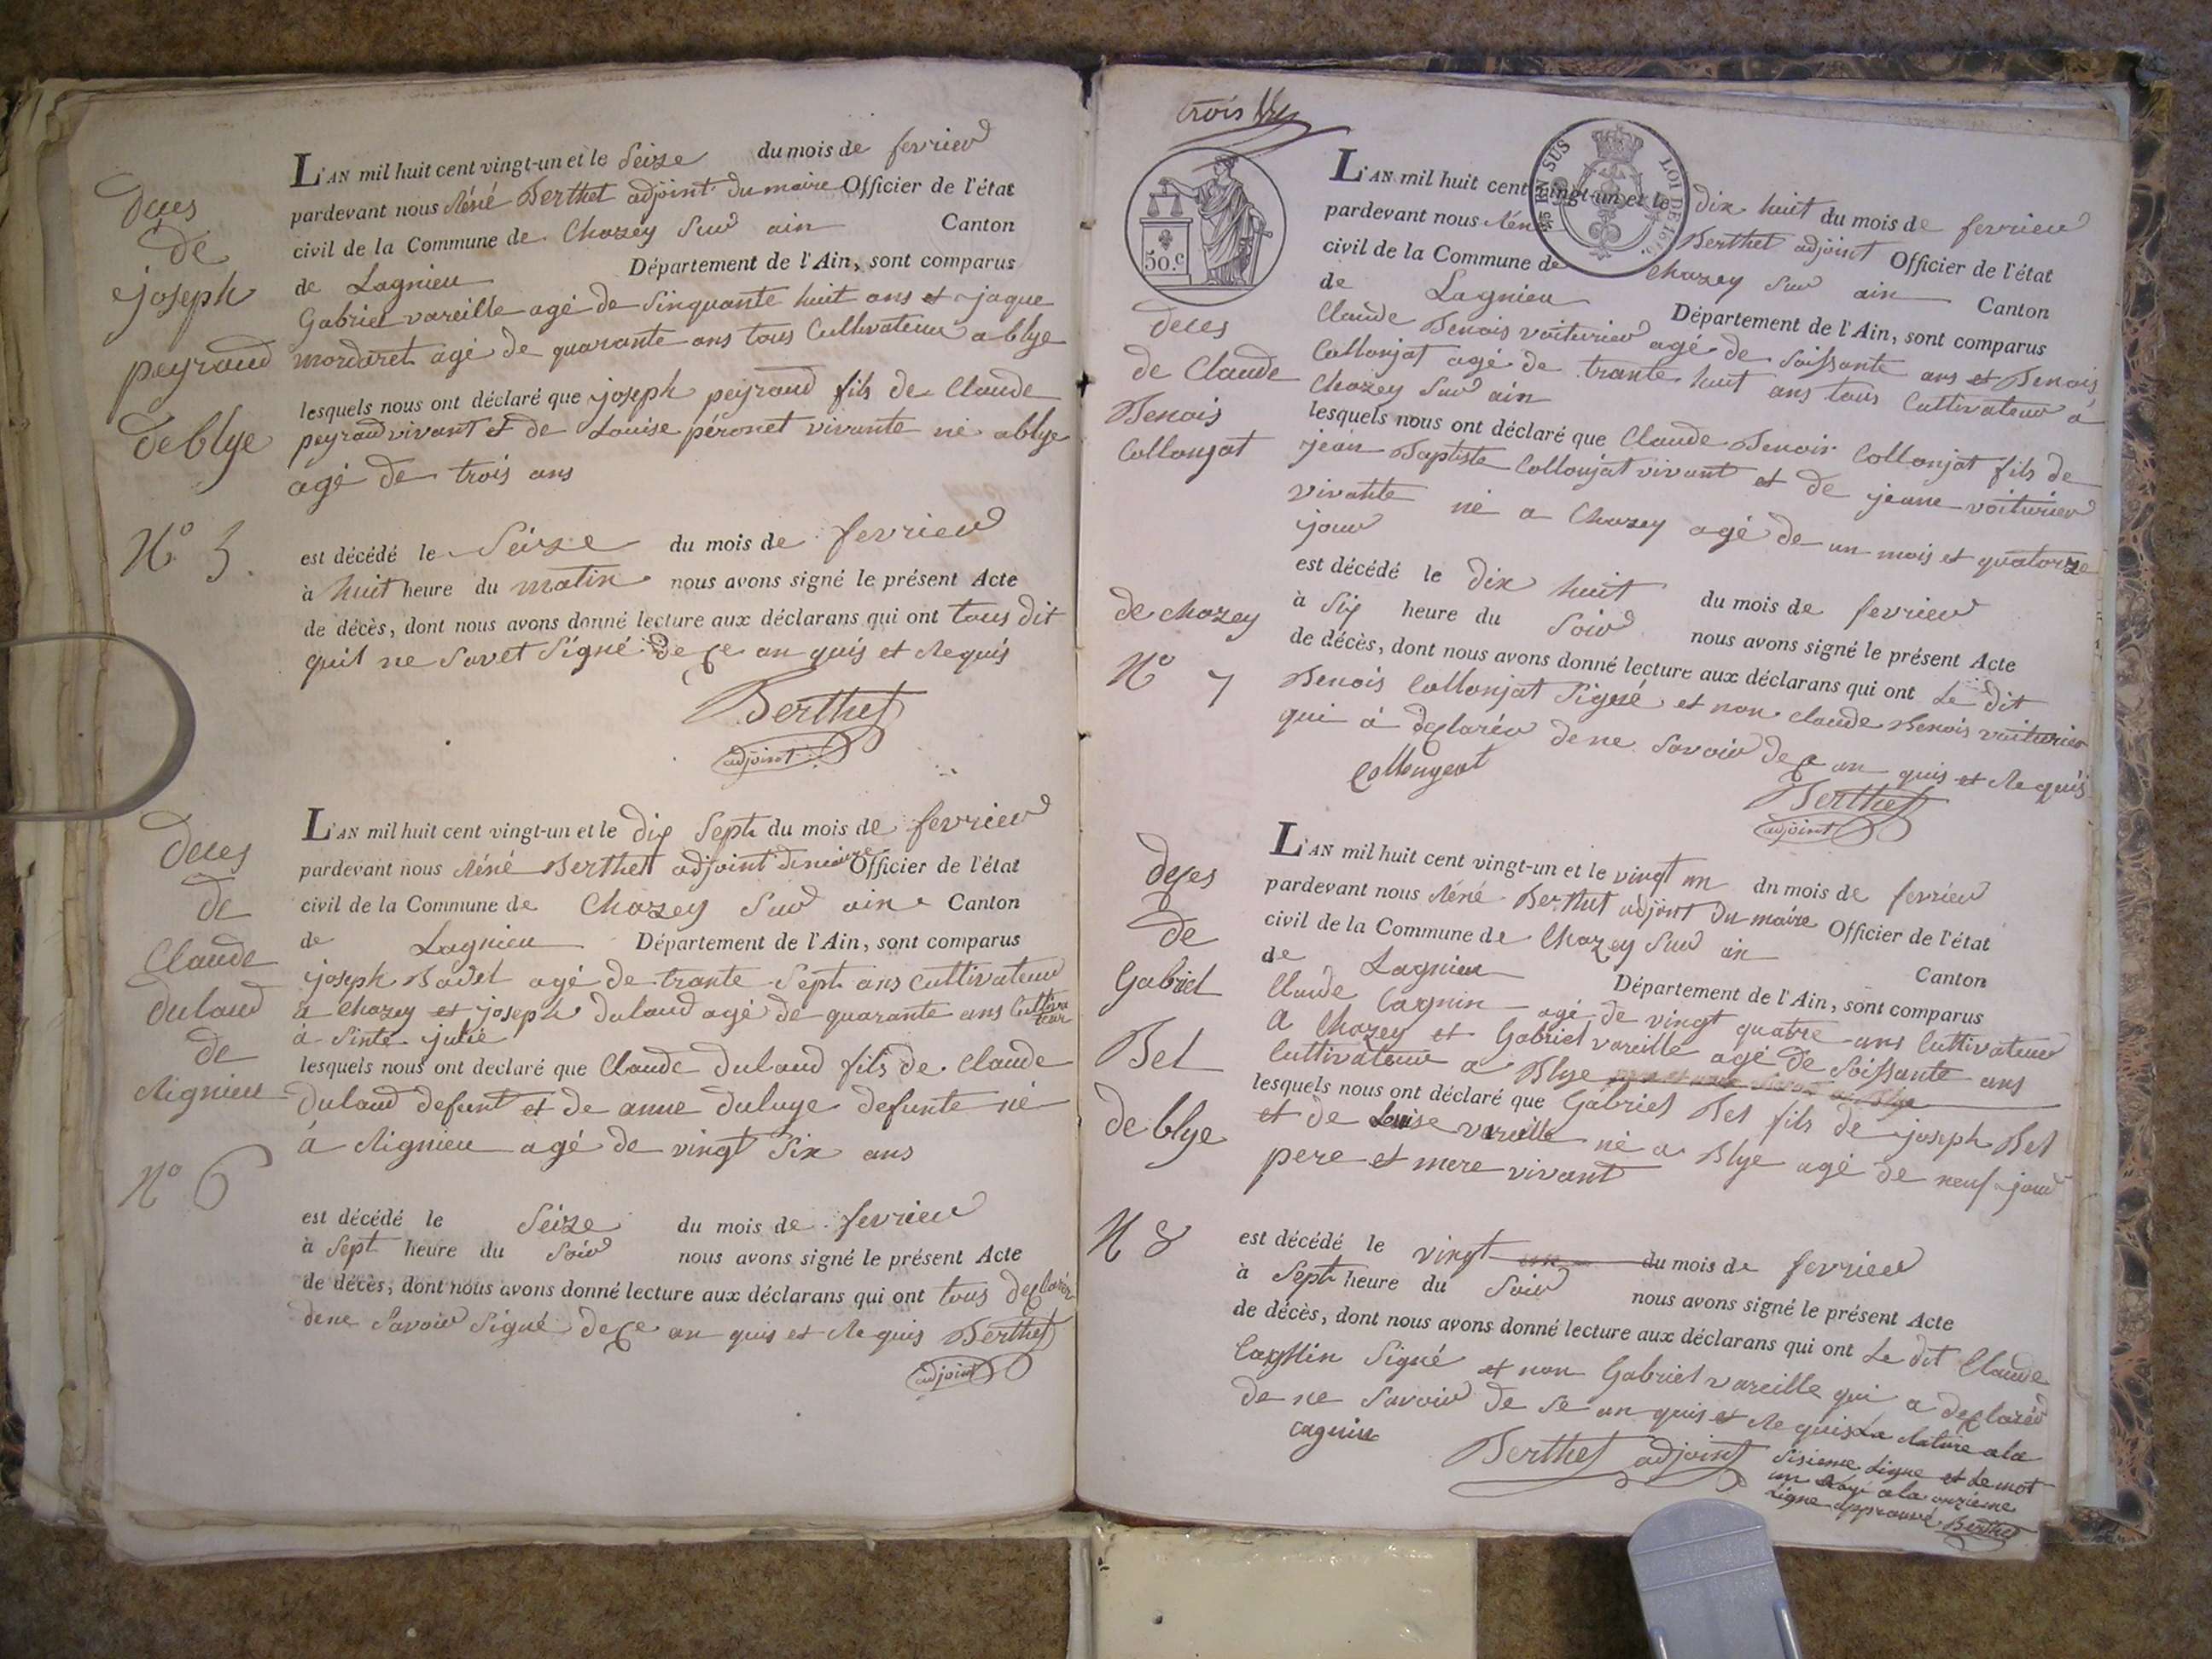 Deces
de
joseph
peyraud
de blye
N.º 5.
L'AN mil huit cent vingt-un et le Seize du mois de fevrier
pardevant nous Réné Berthet adjoint du maire Officier de l'état
civil de la Commune de Chazey Sur ain Canton
de Lagnieu Département de l'Ain, sont comparus
Gabriel vareille agé de Sinquante huit ans et jaque
mordaret agé de quarante ans tous Cultivateur a blye
lesquels nous ont déclaré que joseph peyraud fils de Claude
peyraud vivant et de Louise péronet vivante né a blye
agé de trois ans
est décédé le Seize du mois de fevrier
à huit heure du matin nous avons signé le présent Acte
de décès, dont nous avons donné lecture aux déclarans qui ont tous dit
quil ne Savet Signé de ce an quis et Requis
Berthet
adjoint
Deces
de
Claude
dulaud
de
Rignieu
Nº 6
L'AN mil huit cent vingt-un et le dix Sept du mois de fevrier
pardevant nous Réné Berthet adjoint de maire Officier de l'état
civil de la Commune de Chazey Sur ain Canton
de Lagnieu Département de l'Ain, sont comparus
joseph Badet agé de trante Sept ans Cultivateur
a Chazey et joseph dulaud agé de quarante ans Cultivateur
à Sinte julie
lesquels nous ont declaré que Claude dulaud fils de Claude
dulaud defunt et de anne duluye defunte né
à Rignieu agé de vingt Six ans
est décédé le Seize du mois de fevrier
à Sept heure du Soir nous avons signé le présent Acte
de décès, dont nous avons donné lecture aux déclarans qui ont tous declarér
de ne Savoir Signé de ce an quis et Requis Berthet
adjoint
trois
50.c
EN SUS
LOI DE 1816
Deces
de Claude
Benois
Collonjat
de chazey
Nº 7
L'AN mil huit cent vingt-un et le dix huit du mois de fevrier
pardevant nous Réné Berthet adjoint Officier de l'état
civil de la Commune de Chazey Sur ain Canton
de Lagnieu Département de l'Ain, sont comparus
Claude Benois voiturier agé de Soissante ans et Benois
Collonjat agé de trante huit ans tous Cultivateur à
Chazey Sur ain
lesquels nous ont déclaré que Claude Benois Collonjat fils de
jean Baptiste Collonjat vivant et de jeane voiturier
vivante né a Chazey agé de un mois et quatorze
jour
est décédé le dix huit du mois de fevrier
à Six heure du Soir nous avons signé le présent Acte
de décès, dont nous avons donné lecture aux déclarans qui ont Le dit
Benois Collonjat Signé et non Claude Benois voiturier
qui à declarér de ne Savoir de ce an quis et Requis
Collongeat
Berthet
adjoint
deces
de
Gabriel
Bel
de blye
N 8
L'AN mil huit cent vingt-un et le vingt un du mois de fevrier
pardevant nous Réné Berthet adjoint Du maire Officier de l'état
civil de la Commune de Chazey Sur ain Canton
de Lagnieu Département de l'Ain, sont comparus
Claude Cagnin agé de vingt quatre ans Cultivateur
a Chazey et Gabriel vareille agé de Soissante ans
Cultivateur a Blye
lesquels nous ont déclaré que Gabriel Bel fils de joseph Bel
et de Louise vareille né a Blye agé de neuf jour
pere et mere vivant
est décédé le vingt un du mois de fevrier
à Sept heure du Soir nous avons signé le présent Acte
de décès, dont nous avons donné lecture aux déclarans qui ont Le dit Claude
Cagnin Signé et non Gabriel vareille qui a declarér
de ne Savoir de Se an quis et Requis La Rature a la
cagnin Berthet adjoint Sisieme Ligne et Le mot
un Rayé a la onzieme
Ligne approuvé Berthet